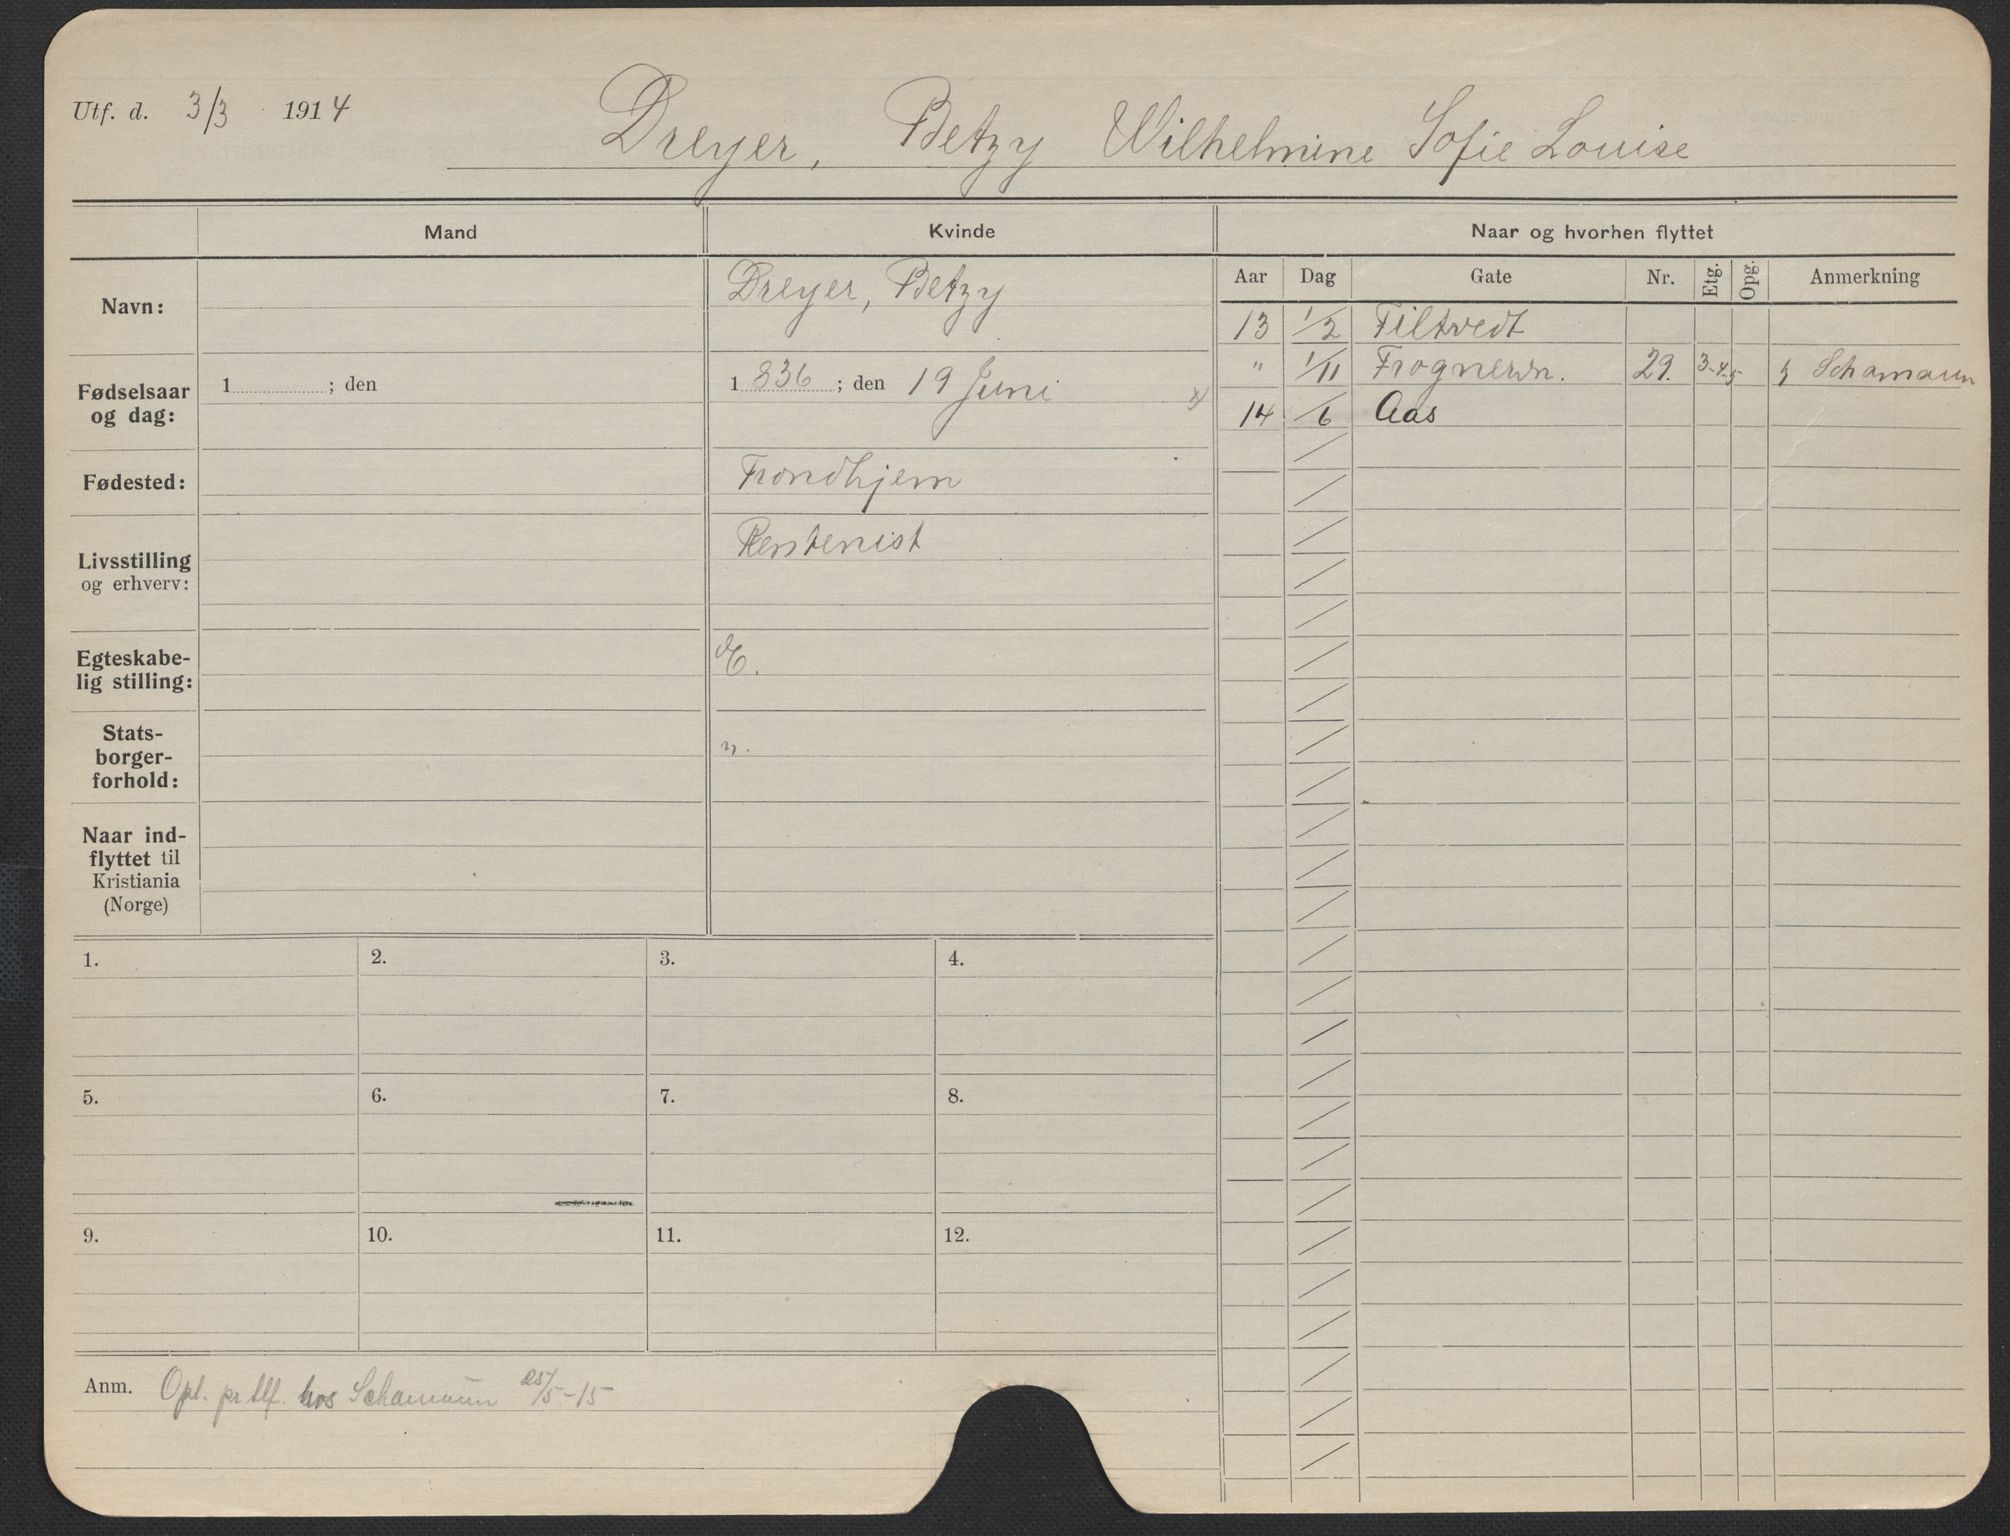 Utf. d. 3/3 1914
Dreyer, Betzy Wilhelmine Sofie Louise
Mand Kvinde Naar og hvorhen flyttet
Aar Dag Gate Nr. Etg. Opg. Anmerkning
Navn: Dreyer, Betzy
13 1/2 Filtvedt
" 1/11 Frognervn. 29. 3-4-5 Schamaun
14 /6 Aas
Fødselsaar
og dag:
1 ; den
1836 ; den 19 Juni
Fødested: Trondhjem
Livsstilling
og erhverv:
Rentenist
Egteskabe-
lig stilling:
E.
Stats-
borger-
forhold:
n.
Naar ind-
flyttet til
Kristiania
(Norge)
1. 2. 3. 4.
5. 6. 7. 8.
9. 10. 11. 12.
Anm. Opl. pr tlf. hos Schamaun 25/5-15